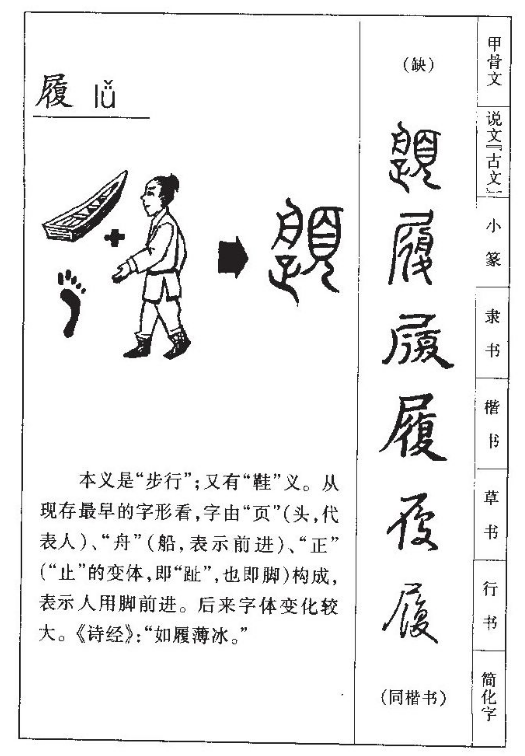 履 lǚ
本义是“步行”；又有“鞋”义。从
现存最早的字形看，字由“页”（头，代
表人）、“舟”（船，表示前进）、“正”
（“止”的变体，即“趾”，也即脚）构成，
表示人用脚前进。后来字体变化较
大。《诗经》：“如履薄冰。”
（缺）
履
履
履
履
履
履
（同楷书）
甲骨文
说文『古文』
小篆
隶书
楷书
草书
行书
简化字